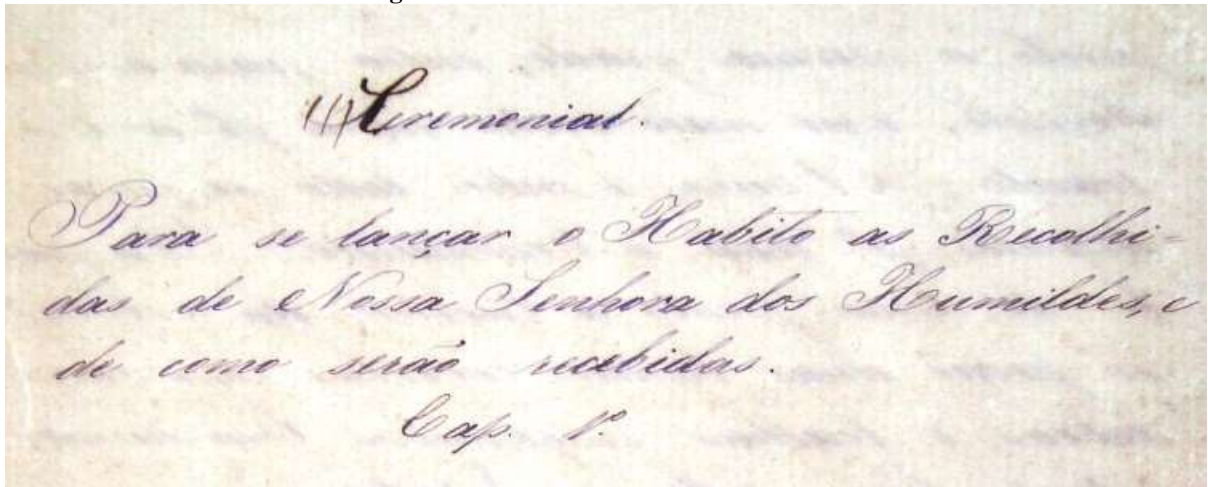 Ceremonial.
Para se lançar o Habito as Recolhi-
das de Nossa Senhora dos Humildes, e
de como serão recebidas.
Cap. 1º.